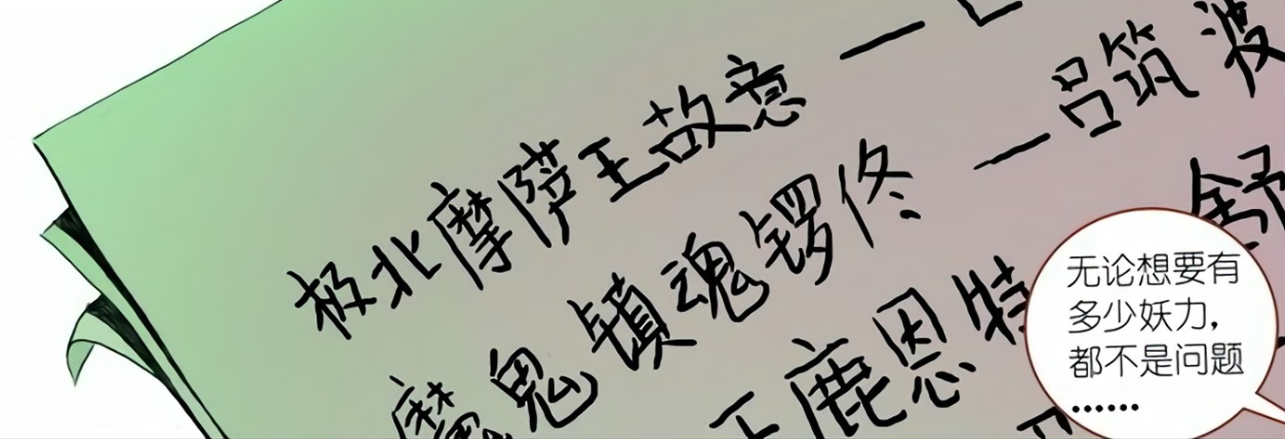 极北摩萨王故意一
魔鬼镇魂锣佟一吕筑波
王鹿恩特
舒
无论想要有
多少妖力，
都不是问题
……